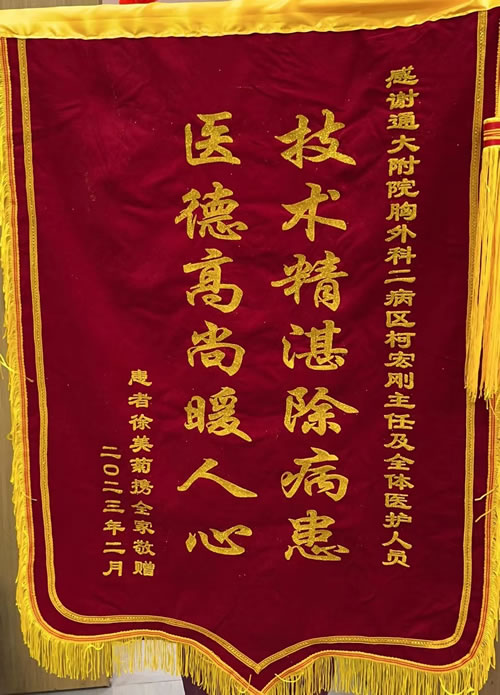 感谢通大附院胸外科二病区柯宏刚主任及全体医护人员
技术精湛除病患
医德高尚暖人心
患者徐美菊携全家敬赠
二〇二三年二月